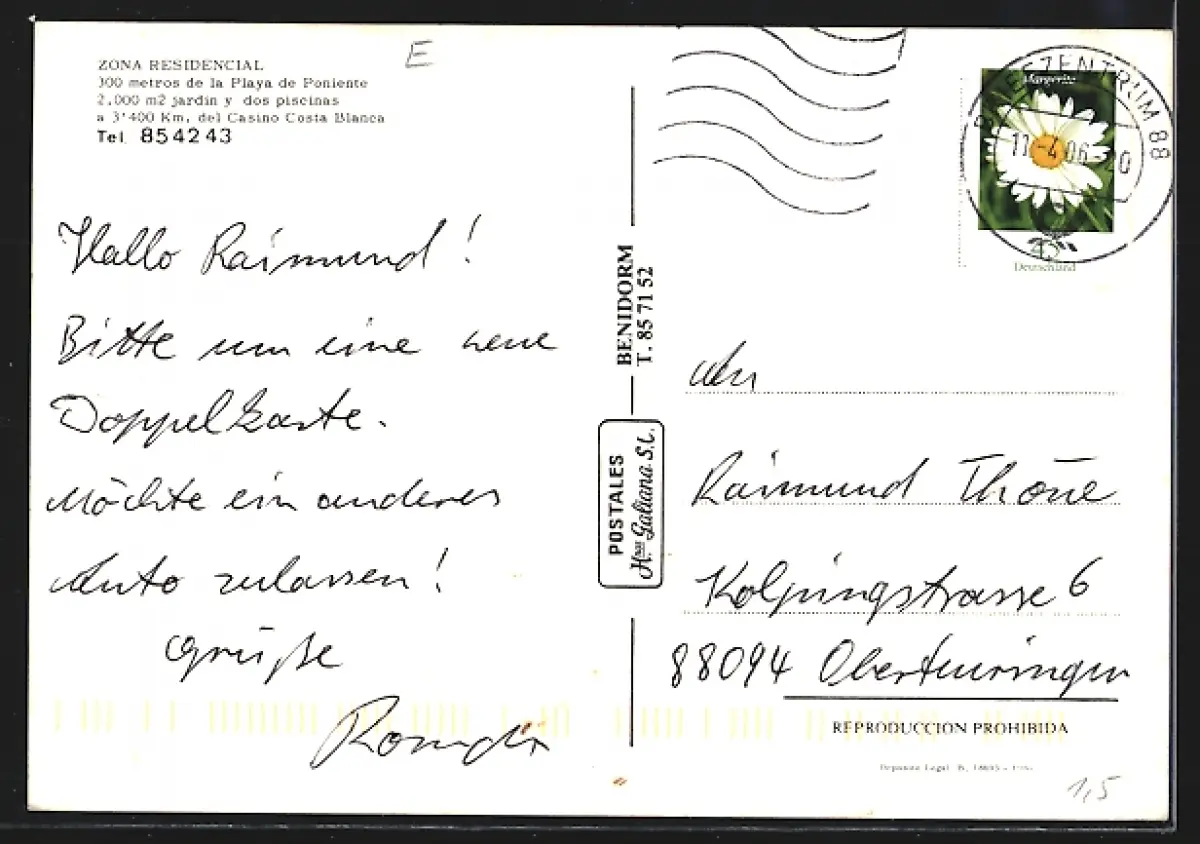 ZONA RESIDENCIAL
300 metros de la Playa de Poniente
2.000 m2 jardin y dos piscinas
a 3'400 Km. del Casino Costa Blanca
Tel. 854243
E
Hallo Raimund!
Bitte um eine neue
Doppelkarte.
Möchte ein anderes
Auto zulassen!
Grüße
BENIDORM
T. 85 71 52
POSTALES
Hnos Galiana S.L.
BRIEFZENTRUM 88
11-4.06-20
Margerite
45
Deutschland
An
Raimund Thöne
Kolpingstrasse 6
88094 Oberteuringen
REPRODUCCION PROHIBIDA
Deposito Legal B.
1,5